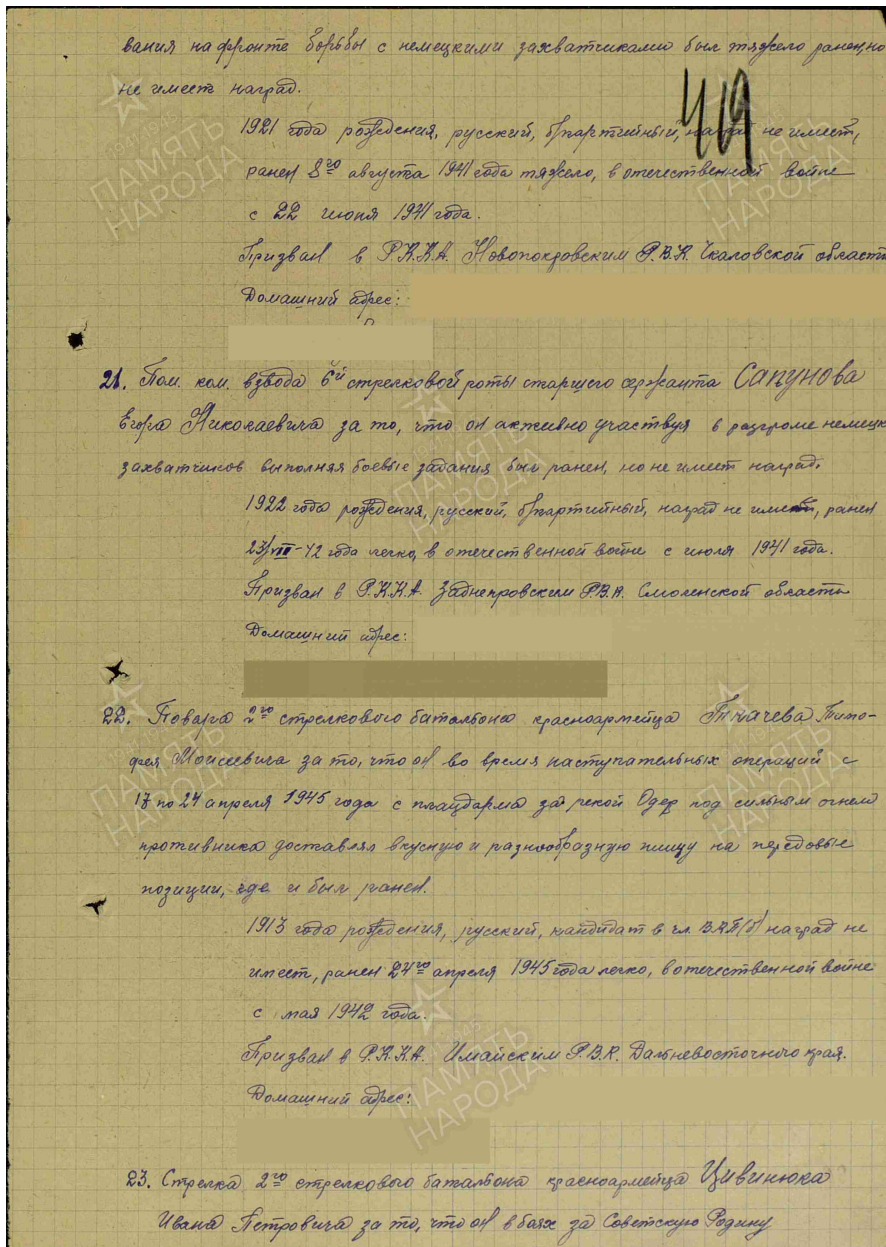 419
вания на фронте борьбы с немецкими захватчиками был тяжело ранен, но
не имеет наград.
1921 года рождения, русский, б/партийный, наград не имеет,
ранен 8го августа 1941 года тяжело, в отечественной войне
с 22 июня 1941 года.
Призван в Р.К.К.А. Новопокровским Р.В.К. Чкаловской области
Домашний адрес:
21. Пом. ком. взвода 6й стрелковой роты старшего сержанта Сапунова
Егора Николаевича за то, что он активно участвуя в разгроме немецк
захватчиков выполняя боевые задания был ранен, но не имеет наград.
1922 года рождения, русский, б/партийный, наград не имеет, ранен
23/VIII-42 года легко, в отечественной войне с июля 1941 года.
Призван в Р.К.К.А. Заднепровским Р.В.К. Смоленской области
Домашний адрес:
22. Повара 2го стрелкового батальона красноармейца Ткачева Тимо-
фея Моисеевича за то, что он во время наступательных операций с
17 по 24 апреля 1945 года с плацдарма за рекой Одер под сильным огнем
противника доставлял вкусную и разнообразную пищу на передовые
позиции, где и был ранен.
1913 года рождения, русский, кандидат в чл. ВКП(б) наград не
имеет, ранен 24го апреля 1945 года легко, в отечественной войне
с мая 1942 года.
Призван в Р.К.К.А. Имайским Р.В.К. Дальневосточного края.
Домашний адрес:
23. Стрелка 2го стрелкового батальона красноармейца Цивинюка
Ивана Петровича за то, что он в боях за Советскую Родину
ПАМЯТЬ
НАРОДА